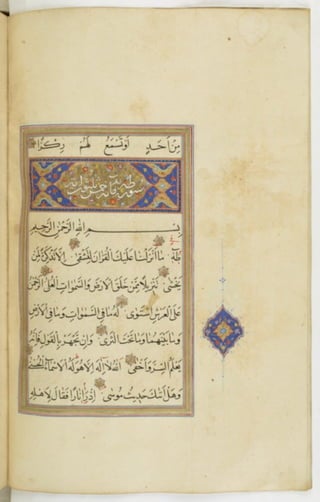 مِنْ اَحَدٍ اَوْ تَسْمَعُ لَهُمْ رِكْزًا
سورة طه
بِسْمِ اللهِ الرَّحْمٰنِ الرَّحِيمِ
طه مَا اَنْزَلْنَا عَلَيْكَ الْقُرْاٰنَ لِتَشْقٰى اِلَّا تَذْكِرَةً لِمَنْ
يَخْشٰى تَنْزِيلًا مِمَّنْ خَلَقَ الْاَرْضَ وَالسَّمٰوَاتِ الْعُلٰى اَلرَّحْمٰنُ
عَلَى الْعَرْشِ اسْتَوٰى لَهُ مَا فِي السَّمٰوَاتِ وَمَا فِي الْاَرْضِ
وَمَا بَيْنَهُمَا وَمَا تَحْتَ الثَّرٰى وَاِنْ تَجْهَرْ بِالْقَوْلِ فَاِنَّهُ
يَعْلَمُ السِّرَّ وَاَخْفٰى اَللهُ لَا اِلٰهَ اِلَّا هُوَ لَهُ الْاَسْمَاءُ الْحُسْنٰى
وَهَلْ اَتٰيكَ حَدِيثُ مُوسٰى اِذْ رَاٰ نَارًا فَقَالَ لِاَهْلِهِ